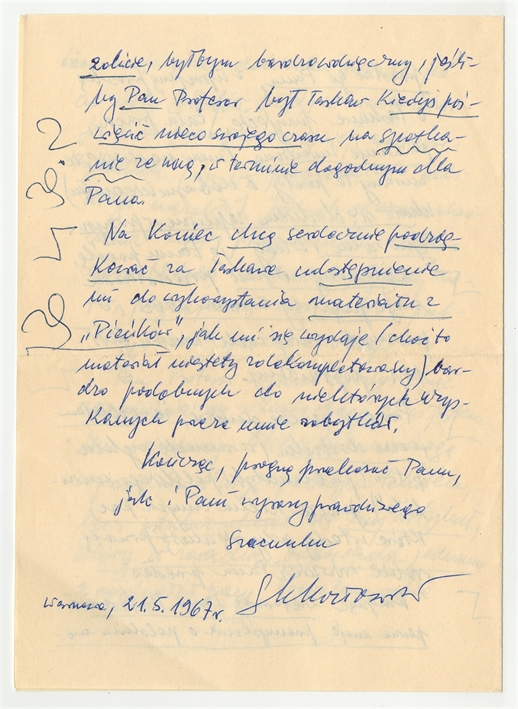 zalicie, byłbym bardzo wdzięczny, jeśli-
by Pan Profesor był łaskaw kiedyś poś-
więcić nieco swojego czasu na spotka-
nie ze mną, w terminie dogodnym dla
Pana.
Na koniec chcę serdecznie podzię-
kować za łaskawe udostępnienie
mi do wykorzystania materiału z
"Pieńków", jak mi się wydaje (choć to
materiał niestety zdekompletowany) bar-
dzo podobnych do niektórych uzys-
kanych przez mnie zabytków.
Kończąc, pragnę przekazać Panu,
jak i Pani wyrazy prawdziwego
szacunku
Warszawa, 21.5.1967 r.